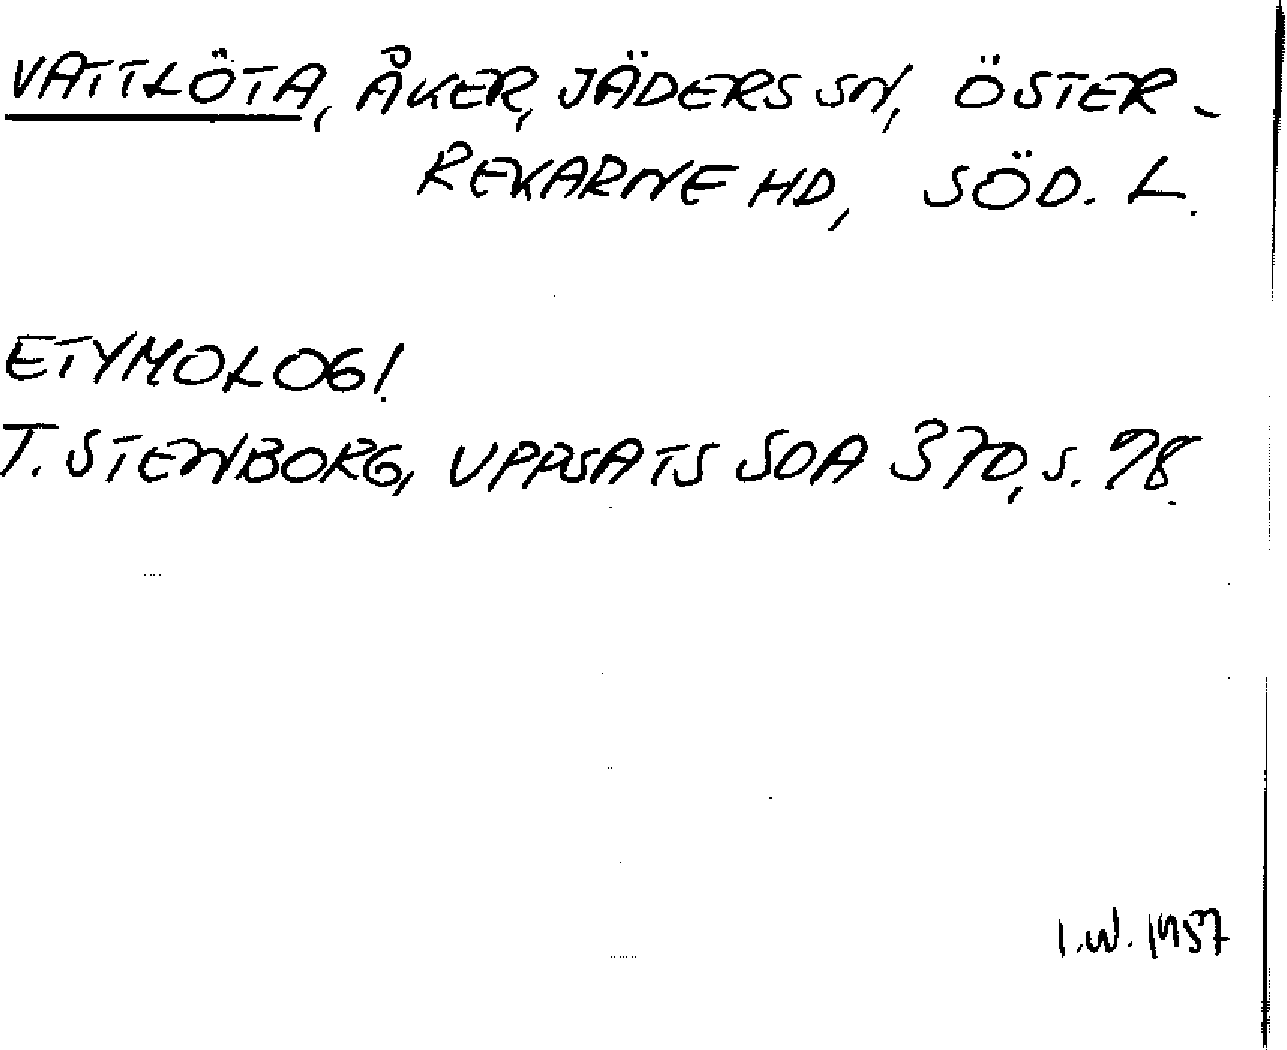 VATTLÖTA, ÅKER, JÄDERS SN, ÖSTER-
REKARNE HD, SÖD. L.
ETYMOLOGI.
T. STENBORG, UPPSATS SOA 370, S. 78.
I.W. 1957